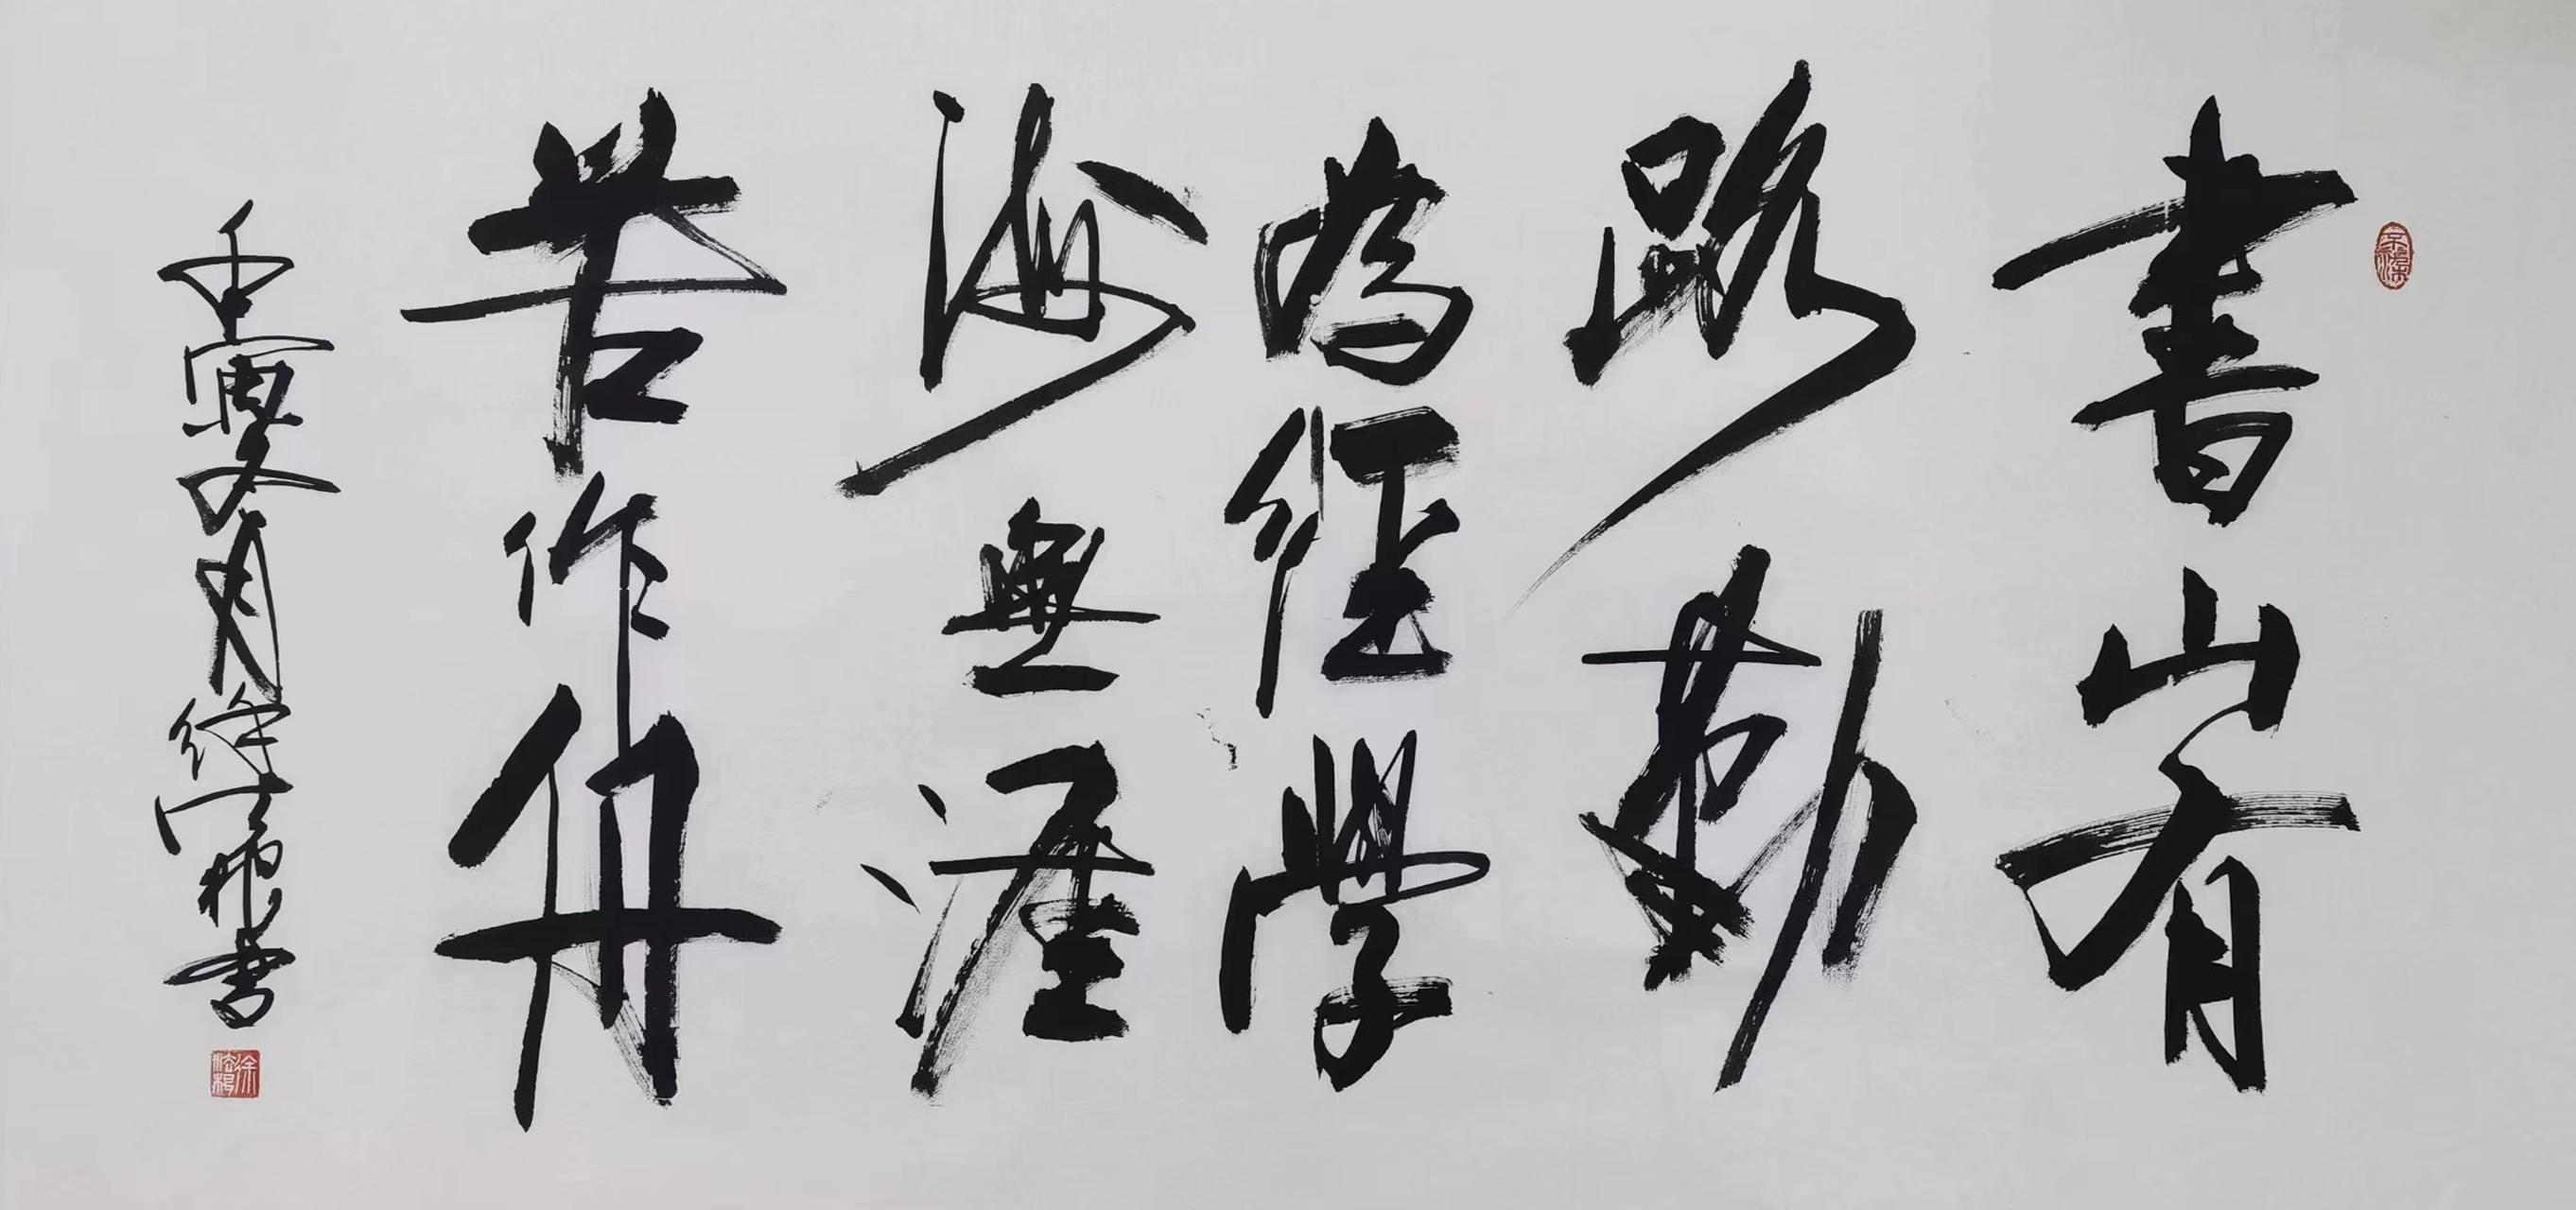 書山有
路勤
為徑學
海無涯
苦作舟
壬寅冬月徐法根書
徐法根